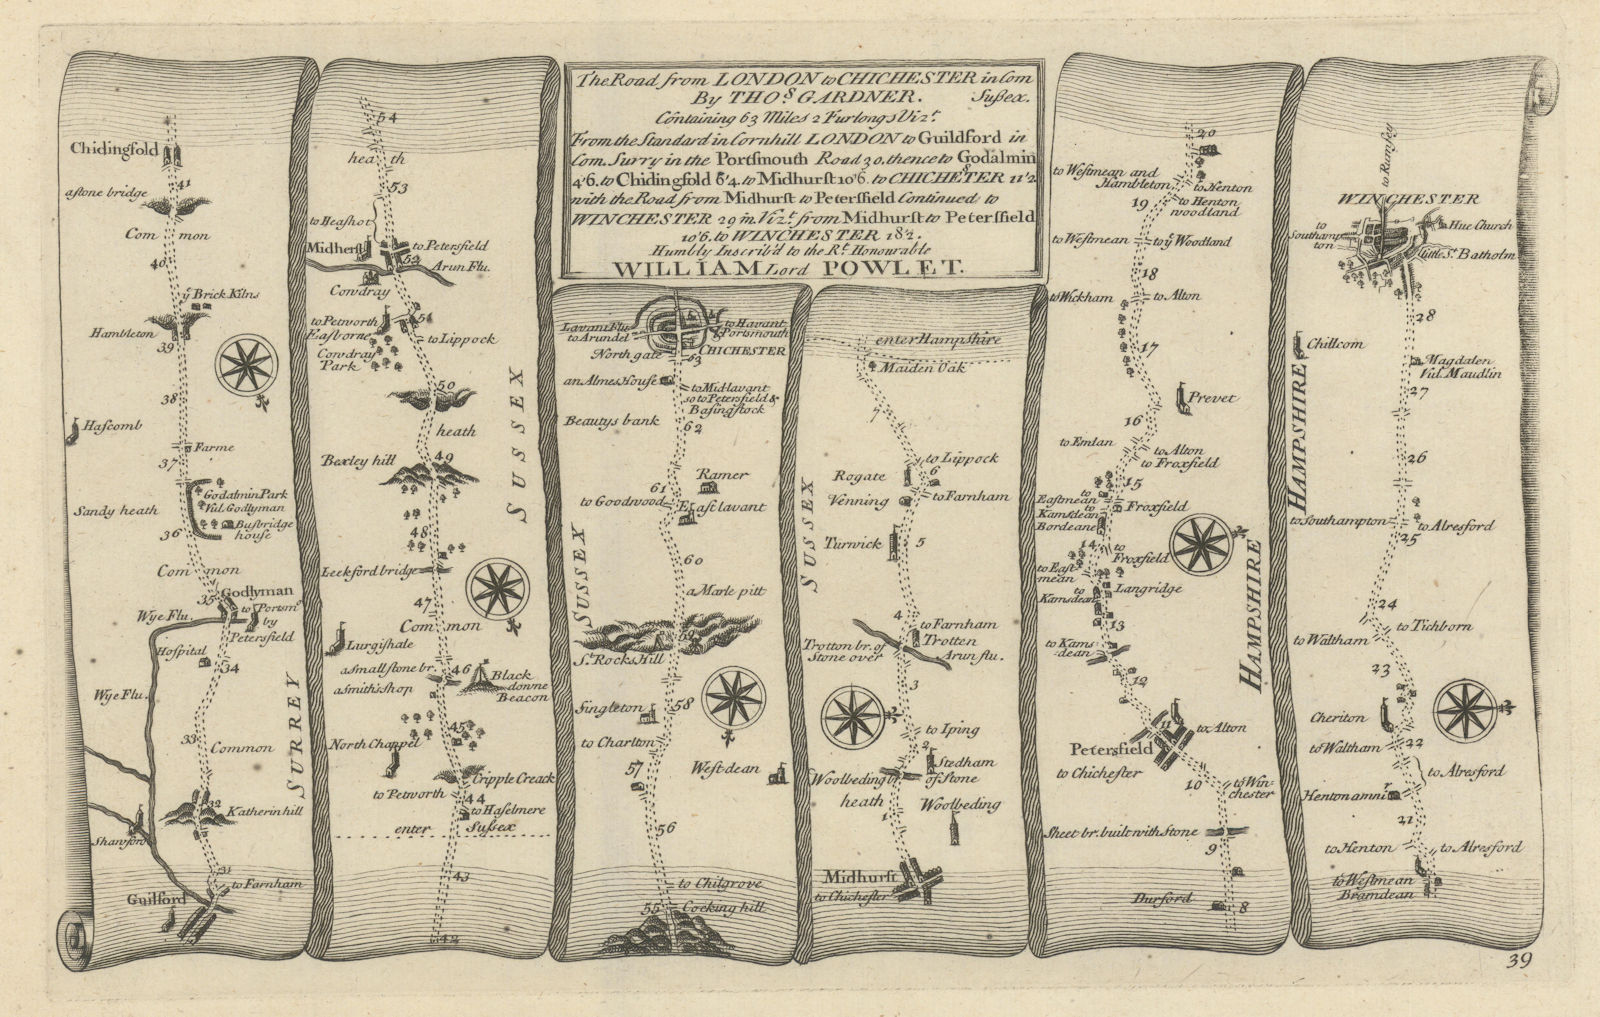 The Road from LONDON to CHICHESTER in Com
By THO.S GARDNER. Sußex.
Containing 63 Miles 2 Furlongs Vizt.
From the Standard in Cornhill LONDON to Guildford in
Com. Surry in the Portsmouth Road 30. thence to Godalmin
4'6. to Chidingfold 6'4. to Midhurst 10'6. to CHICHESTER 11'2.
with the Road from Midhurst to Petersfield Continued to
WINCHESTER 29 m. Vizt. from Midhurst to Petersfield
10'6. to WINCHESTER 18'2.
Humbly Inscrib'd to the Rt. Honourable
WILLIAM Lord POWLET.
Chidingfold
41
a stone bridge
Common
40
ye Brick Kilns
Hambleton
39
38
Hascomb
Farme
37
Godalmin Park
Vul. Godlyman
Sandy heath
Busbridge
house
36
Common
35
Godlyman
to Portsmo
by
Petersfield
Wye Flu.
Hospital
34
Wye Flu.
33
Common
SURREY
32
Katherin hill
Shawford
31
to Farnham
Guilford
54
heath
53
to Heashot
Midherst
to Petersfield
52
Arun Flu.
Cowdray
to Petworth
51
Easborne
to Lippock
Cowdray
Park
50
SUSSEX
heath
Bexley hill
49
48
Leekford bridge
47
Common
Lurgishale
a small stone br.
46
Black
downe
Beacon
a smith's shop
45
North Chappel
Cripple Creack
to Petworth
44
to Haselmere
enter Sußex
43
42
Lavant Flu.
to Arundel
to Havant
Portsmouth
North gate
CHICHESTER
63
an Almes House
to Midlavant
so to Petersfield &
Basingstock
Beautys bank
62
Ramer
61
to Goodwood
East lavant
SUSSEX
60
a Marle pitt
59
St. Rocks Hill
Singleton
58
to Charlton
57
West dean
56
to Chilgrove
55
Cocking hill
enter Hampshire
Maiden Oak
7
to Lippock
Rogate
6
Venning
to Farnham
SUSSEX
Turwick
5
4
to Farnham
Trotten
Trotton br. of
Stone over
Arun flu.
3
to Iping
2
Stedham
of Stone
Woolbeding
heath
Woolbeding
1
Midhurst
to Chichester
20
to Westmean and
Hambleton
to Henton
19
to Henton
woodland
to Westmean
to ye Woodland
18
to Wickham
to Alton
17
Prevet
16
to Emlan
to Alton
to Froxfield
15
to
Eastmean
to
Kamsdean
Bordeane
Froxfield
14
to
Froxfield
to East
mean
Langridge
to
Kamsdean
13
to Kams
dean
12
HAMPSHIRE
11
to Alton
Petersfield
to Chichester
10
to Win-
chester
Sheet br. built with Stone
9
Durford
8
to Rumsey
WINCHESTER
to
Southamp
ton
Hue Church
Little St. Batholm
28
Chillcom
Magdalen
Vul. Maudlin
27
HAMPSHIRE
26
to Southampton
to Alresford
25
24
to Waltham
to Tichborn
23
Cheriton
to Waltham
22
to Alresford
Henton amnir
21
to Henton
to Alresford
to Westmean
Bramdean
39